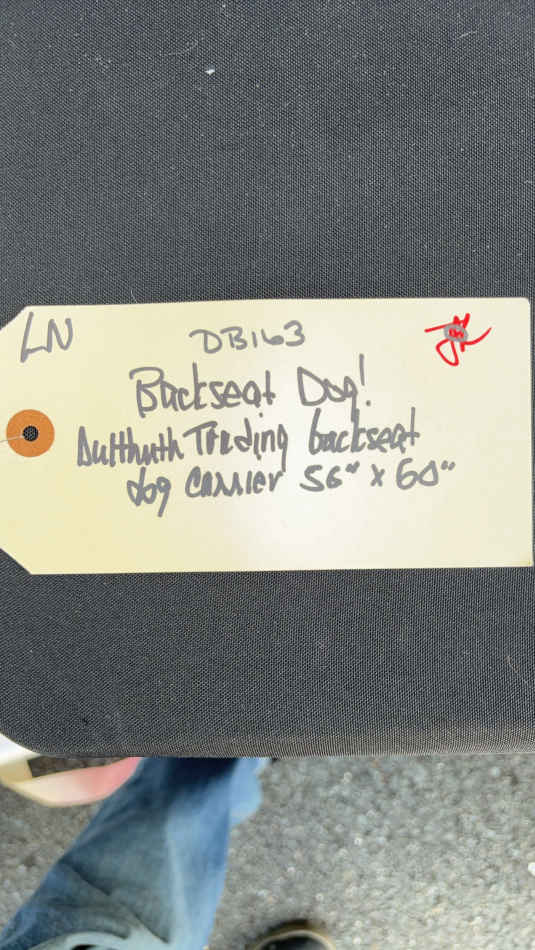 LN
DB163
Backseat Dog!
Trading backseat
dog carrier 56" x 60"